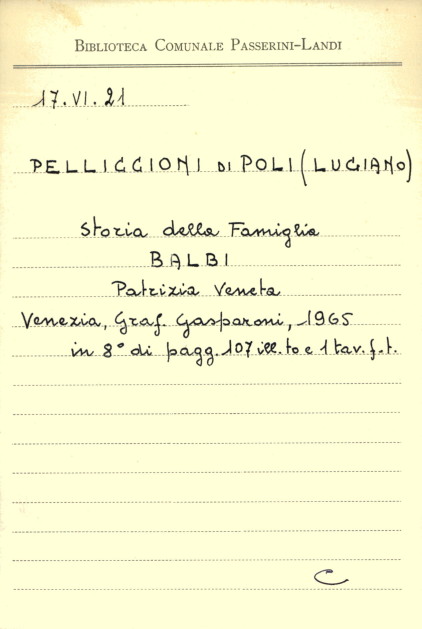 BIBLIOTECA COMUNALE PASSERINI-LANDI
17.VI.21
PELLICCIONI DI POLI (LUCIANO)
Storia della Famiglia
BALBI
Patrizia Veneta
Venezia, Graf. Gasparoni, 1965
in 8° di pagg. 107 ill.to e 1 tav. f.t.
C